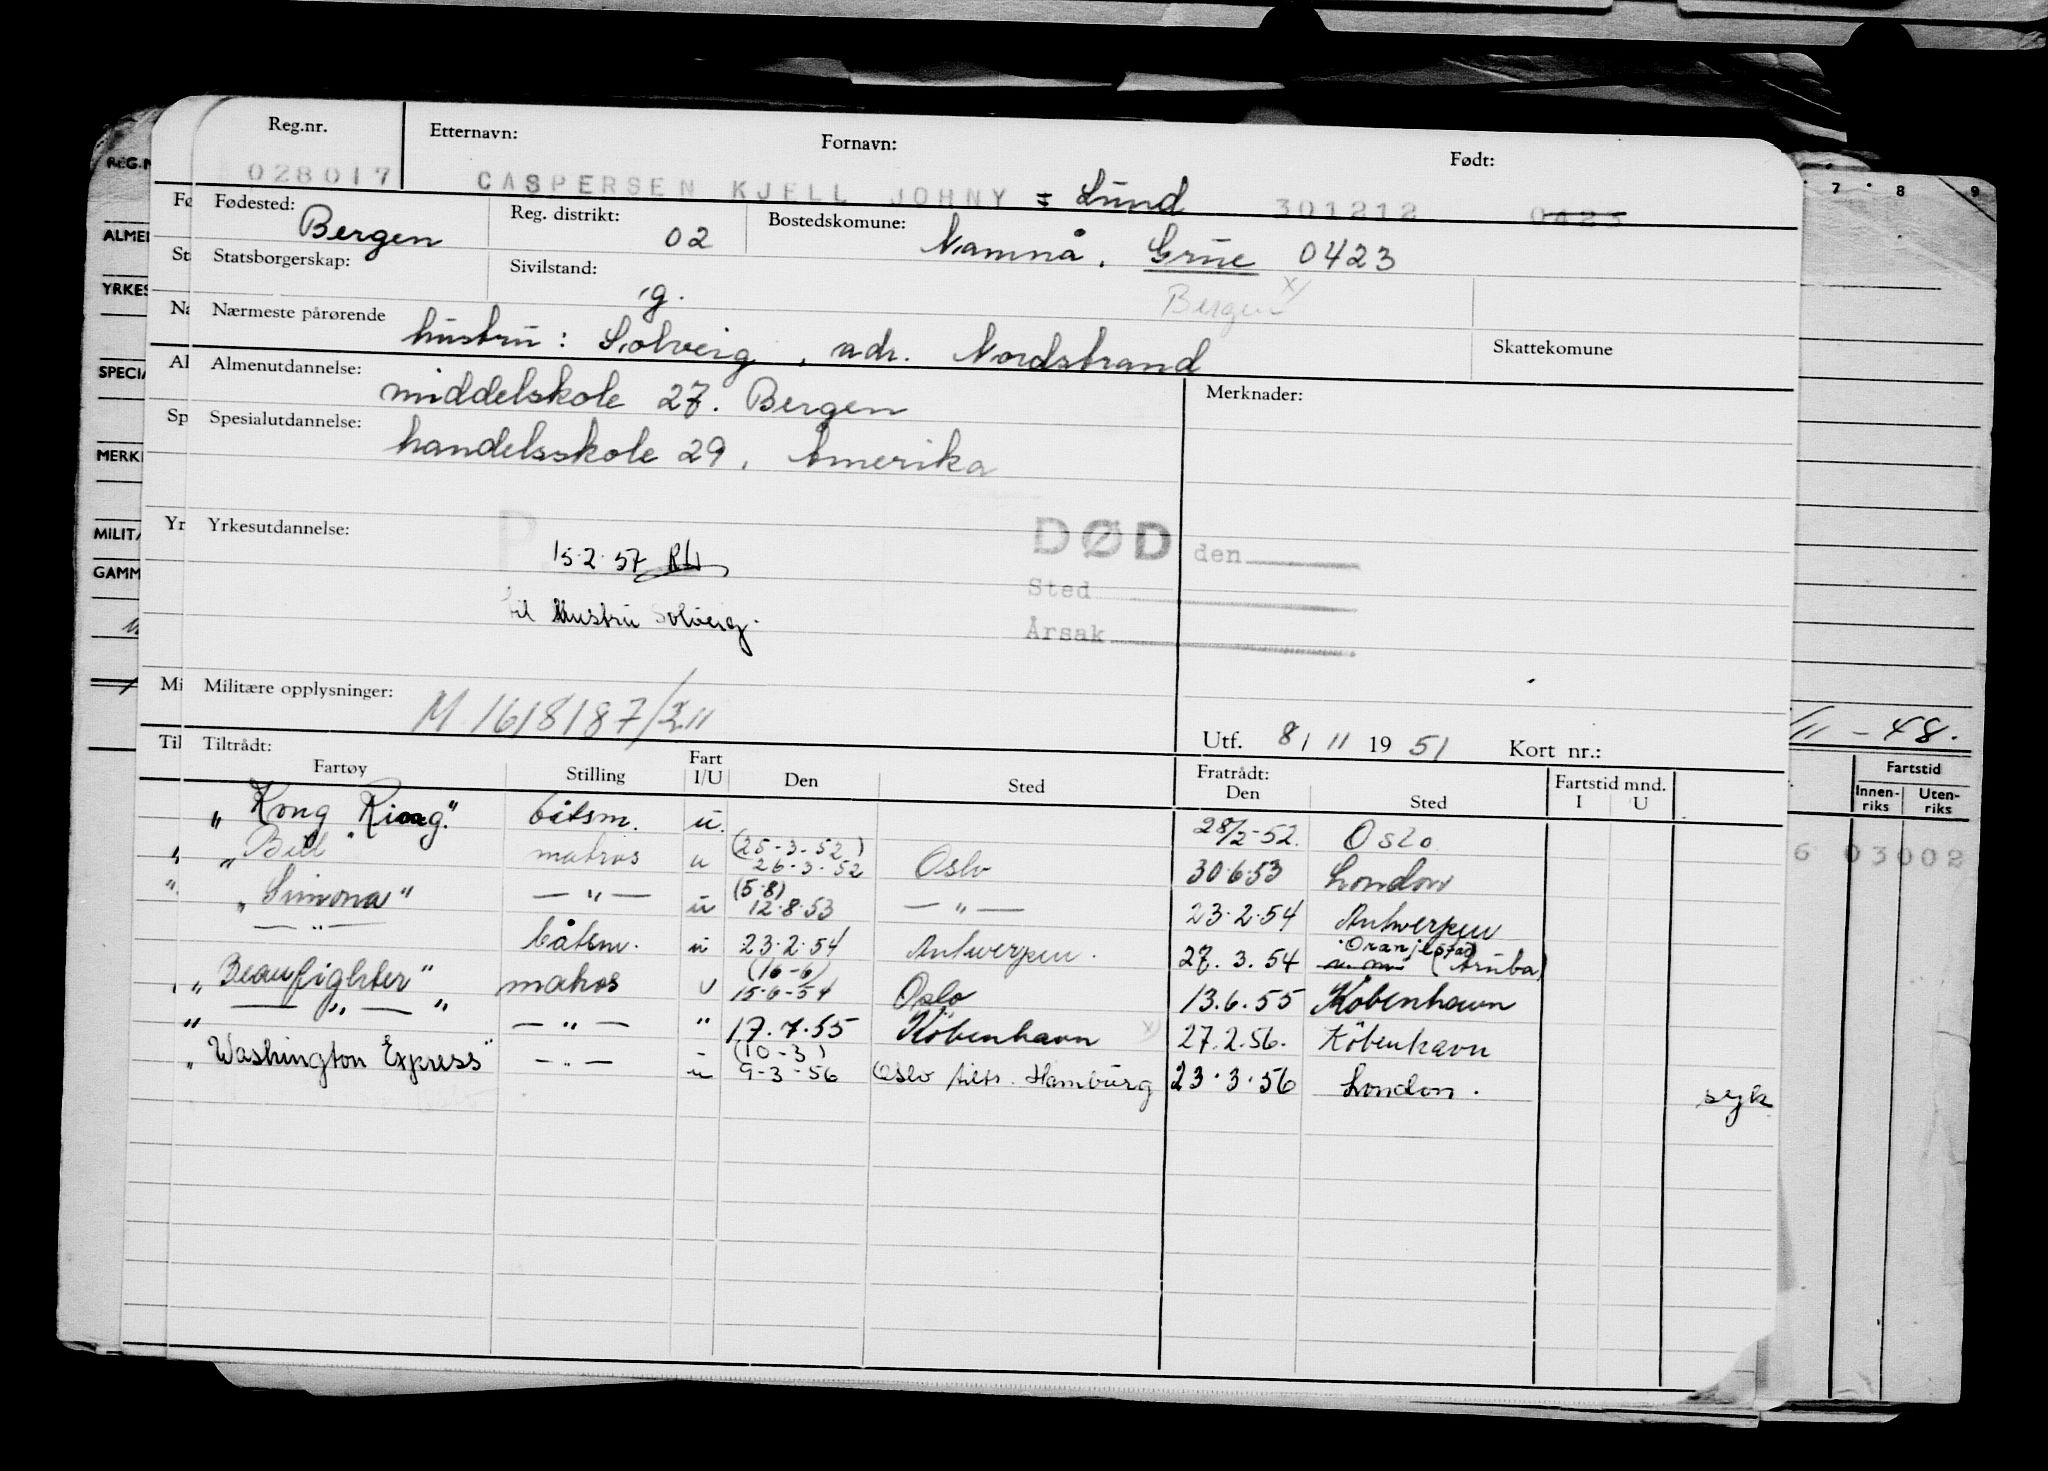 Reg.nr. Etternavn: Fornavn: Født:
028017 CASPERSEN KJELL JOHNY = Lund 301212 0423
Fødested: Bergen Reg. distrikt: 02 Bostedskomune: Namnå, Grue 0423
Statsborgerskap: Sivilstand: g. Bergen x)
Nærmeste pårørende hustru: Solveig, adr. Nordstrand Skattekomune
Almenutdannelse: middelskole 27. Bergen Merknader:
Spesialutdannelse: handelsskole 29, Amerika
Yrkesutdannelse: P. DØD den
15.2.57
Sted
til Hustru Solveig.
Årsak
Militære opplysninger: M 1618187/
Utf. 8/11 1951 Kort nr.:
Tiltrådt: Fratrådt: Fartstid mnd.
Fartøy Stilling Fart I/U Den Sted Den Sted I U
"Kong Ring" båtsm. u. 28/2-52. Oslo
"Bill" matros u (25-3-52) 26-3-52 Oslo 30.6.53 London
"Simona" — " — u (5.8) 12.8.53 — " — 23.2.54 Antwerpen
— " — båtsm. u 23.2.54 Antwerpen. 27.3.54 Oranjestad (Aruba)
"Beaufighter" matros u (16-6) 15-6-54 Oslo 13.6.55 København
— " — " — " — " 17.7.55 København x) 27.2.56. København
"Washington Express" — " — u (10-3) 9-3-56 Oslo tiltr. Hamburg 23.3.56 London. syk
REG.N
ALMEI
YRKES
SPECIA
MERKI
MILITÆ
GAMM
7 8 9
/11 - 48.
Fartstid
Innen-riks Uten-riks
6 03002